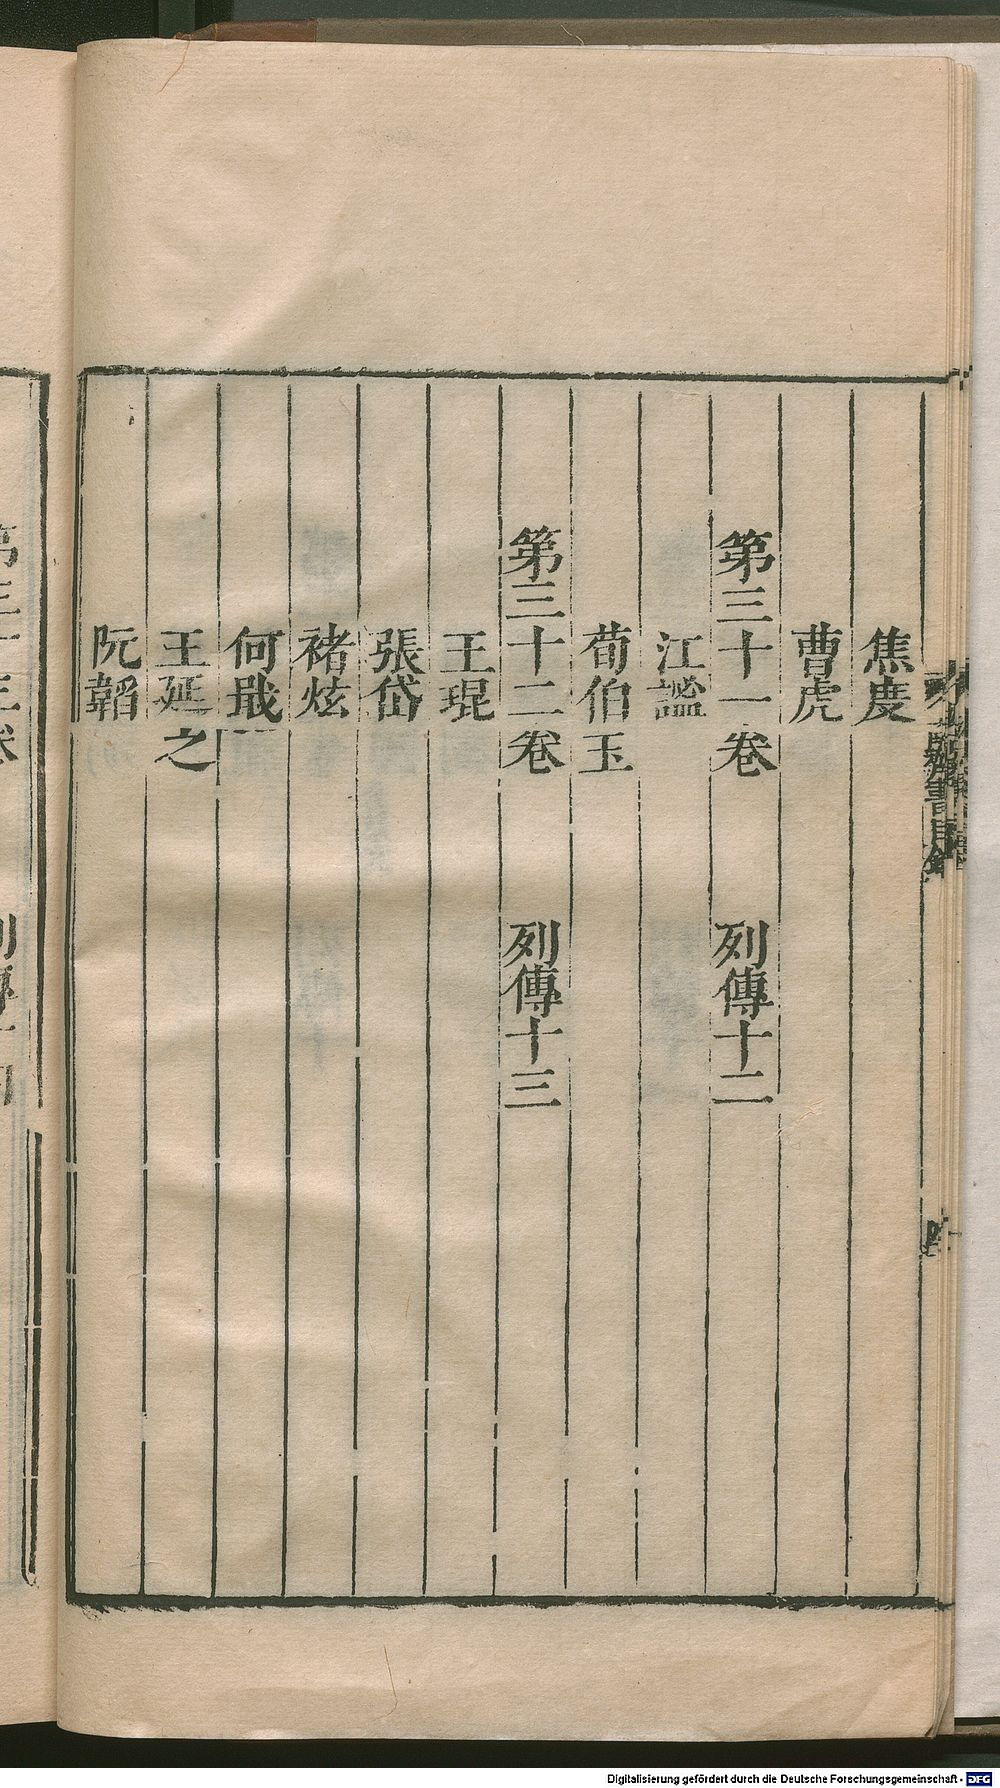 焦度
曹虎
第三十一卷 列傳十二
江謐
荀伯玉
第三十二卷 列傳十三
王琨
張岱
褚炫
何戢
王延之
阮韜
Digitalisierung gefördert durch die Deutsche Forschungsgemeinschaft - DFG